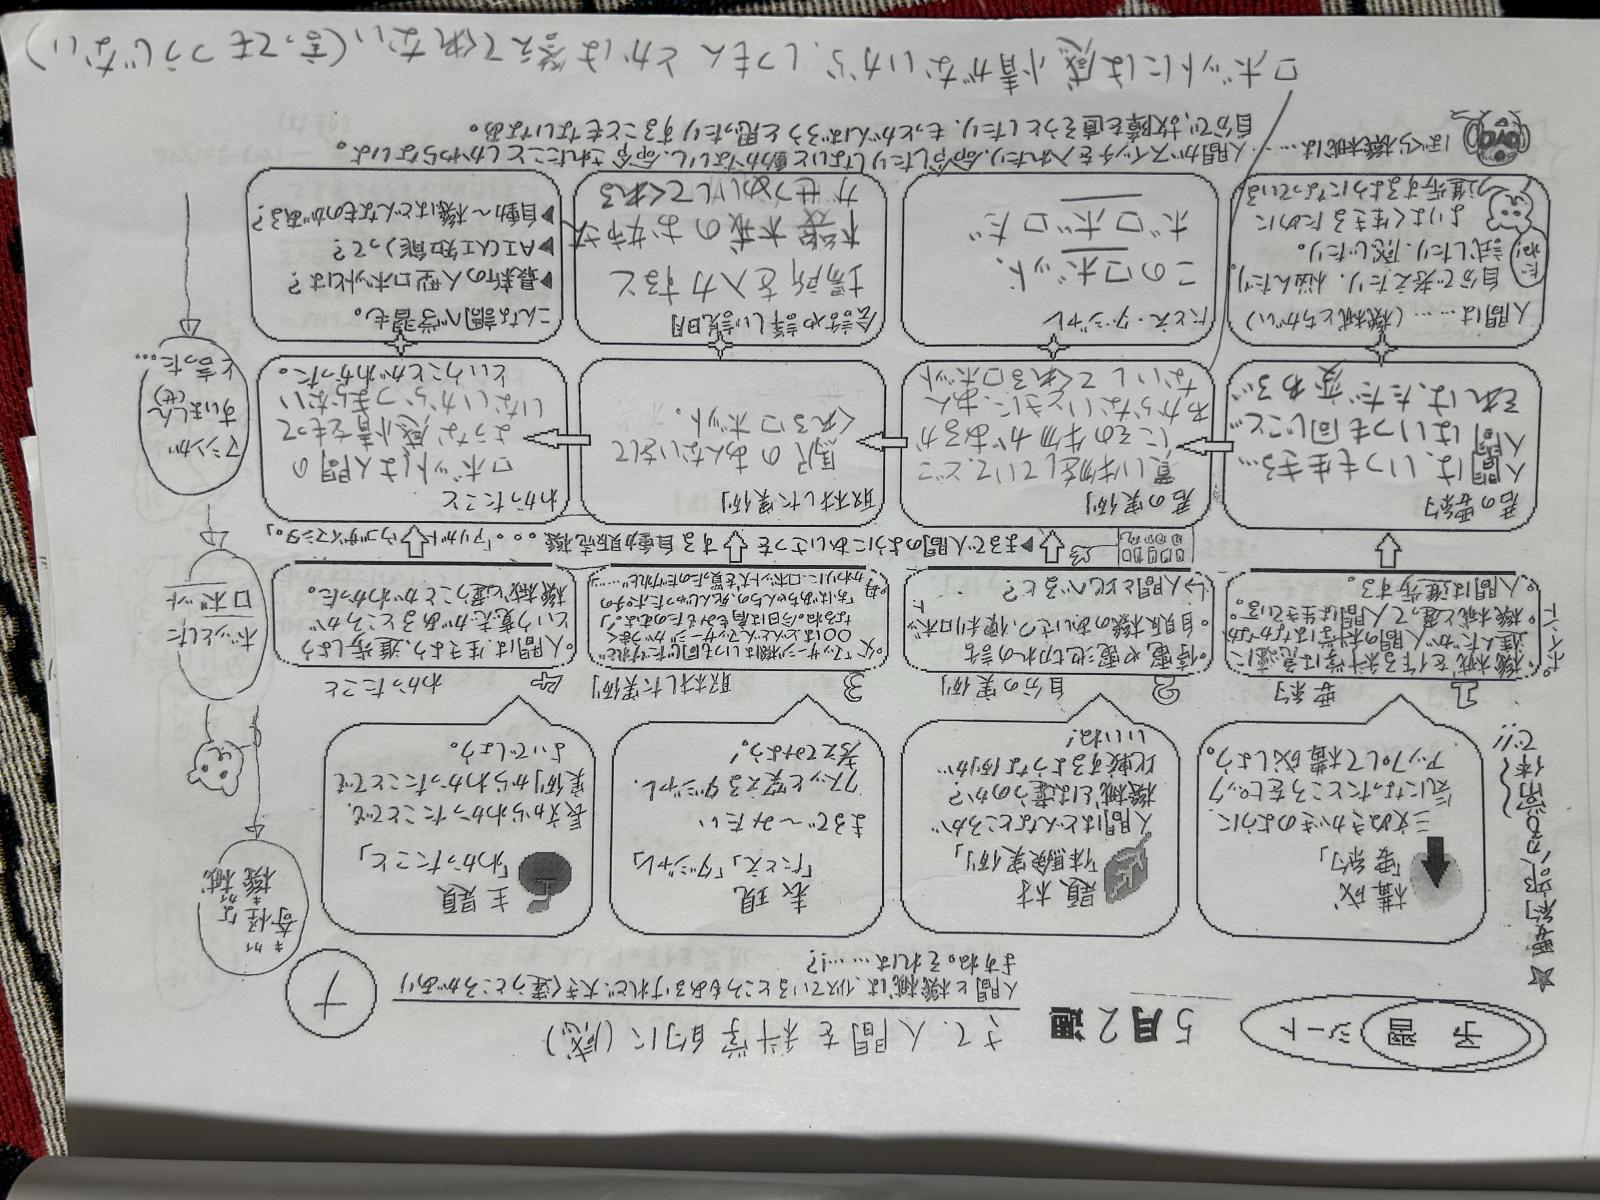 予習シート
5月2週
さて、人間を科学的に(感)
人間と機械は、似ているところもあるけれど、大きく違うところがあり
ますね。それは……!?
ナ
★要約
で!!
構成
「要約」
三文ぬきがきのように
気になったところをピック
アップして構成しよう。
題材
「体験実例」
人間はどんなところが
機械とは違うのか?
比較するような例が
いいね!
表現
「たとえ」「ダジャレ」
まるで〜みたい
クスッと笑えるダジャレ、
考えてみよう!
主題
「わかったこと」
長文からわかったことでも、
実例からわかったことでも
よいでしょう。
1 要約
ポイント
機械を作る科学は急速に
進んだが人間の科学はなかなか
機械と違って人間は生きている。
人間は進歩する
2 自分の実例
停電や電池切れの話
自販機のあいさつ、便利ロボット
→人間と比べると?
3 取材した実例
父「マッサージ機はいつも同じだけれど
〇〇はどんどんマッサージがうまく
なるね。今日は肩もみをたのむよ。」
母「おばあちゃんちの、死んじゃったポチの
かわりに、ロボット犬を買ったのだけれど……」
4 わかったこと
人間は生きよう進歩しよう
という意志があるところが
機械と違うことがわかった。
▶まるで人間のようにあいさつをする自動販売機。。。「アリガトウゴザイマシタ。」
君の要約
人間は、いつも生きる…
人間はいつも同じこと…
それは、ただ変わる…
君の実例
買い物をしていて、どこ
にその物があるか
わからないときに、あん
ないしてくれるロボット
取材した実例
駅のあんないをして
くれるロボット。
わかったこと
ロボットは人間の
ような感情をもって
いないから、つまらない
ということがわかった。
人間は……(機械とちがい)
自分で考えたり、悩んだり、
試したり、感じたり。
よりよく生きるために
進歩するようになっている
だね!
たとえ・ダジャレ
このロボット、
ボロボロだ
会話や詳しい説明
場所を入力すると
機械のお姉さん
がせつめいしてくれる
こんな調べ学習も。
▶最新の人型ロボットとは?
▶AI(人工知能)って?
▶自動〜機はどんなものがある?
ぼくら機械は………人間がスイッチを入れたり、命令したりしないと動かないし、命令されたことしかわからないよ。
自分で、故障を直そうとしたり、もっとがんばろうと思ったりすることもないなあ。
ロボットには感情がないから、しつもんとかは答えてくれない(言ってもつうじない)
奇怪な機械
ボッとした
ロボット
マシンが
すいましぇん
(せ)
と言った…